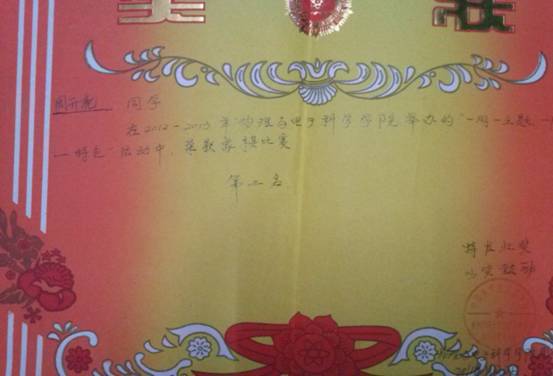 奖状
周开亮 同学
在2012-2013年物理与电子科学学院举办的"一周一主题,一
一特色"活动中,荣获象棋比赛
第二名.
特发此奖
以资鼓励